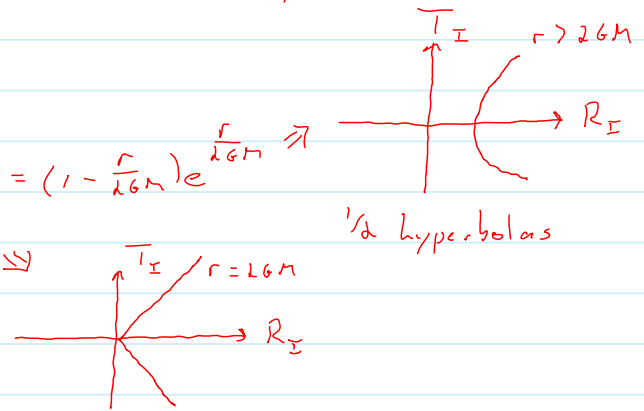 T_I
r > 2GM
R_I
= (1 - r/2GM) e^{r/2GM} ⇒
1/2 hyperbolas
T_I
r = 2GM
R_I